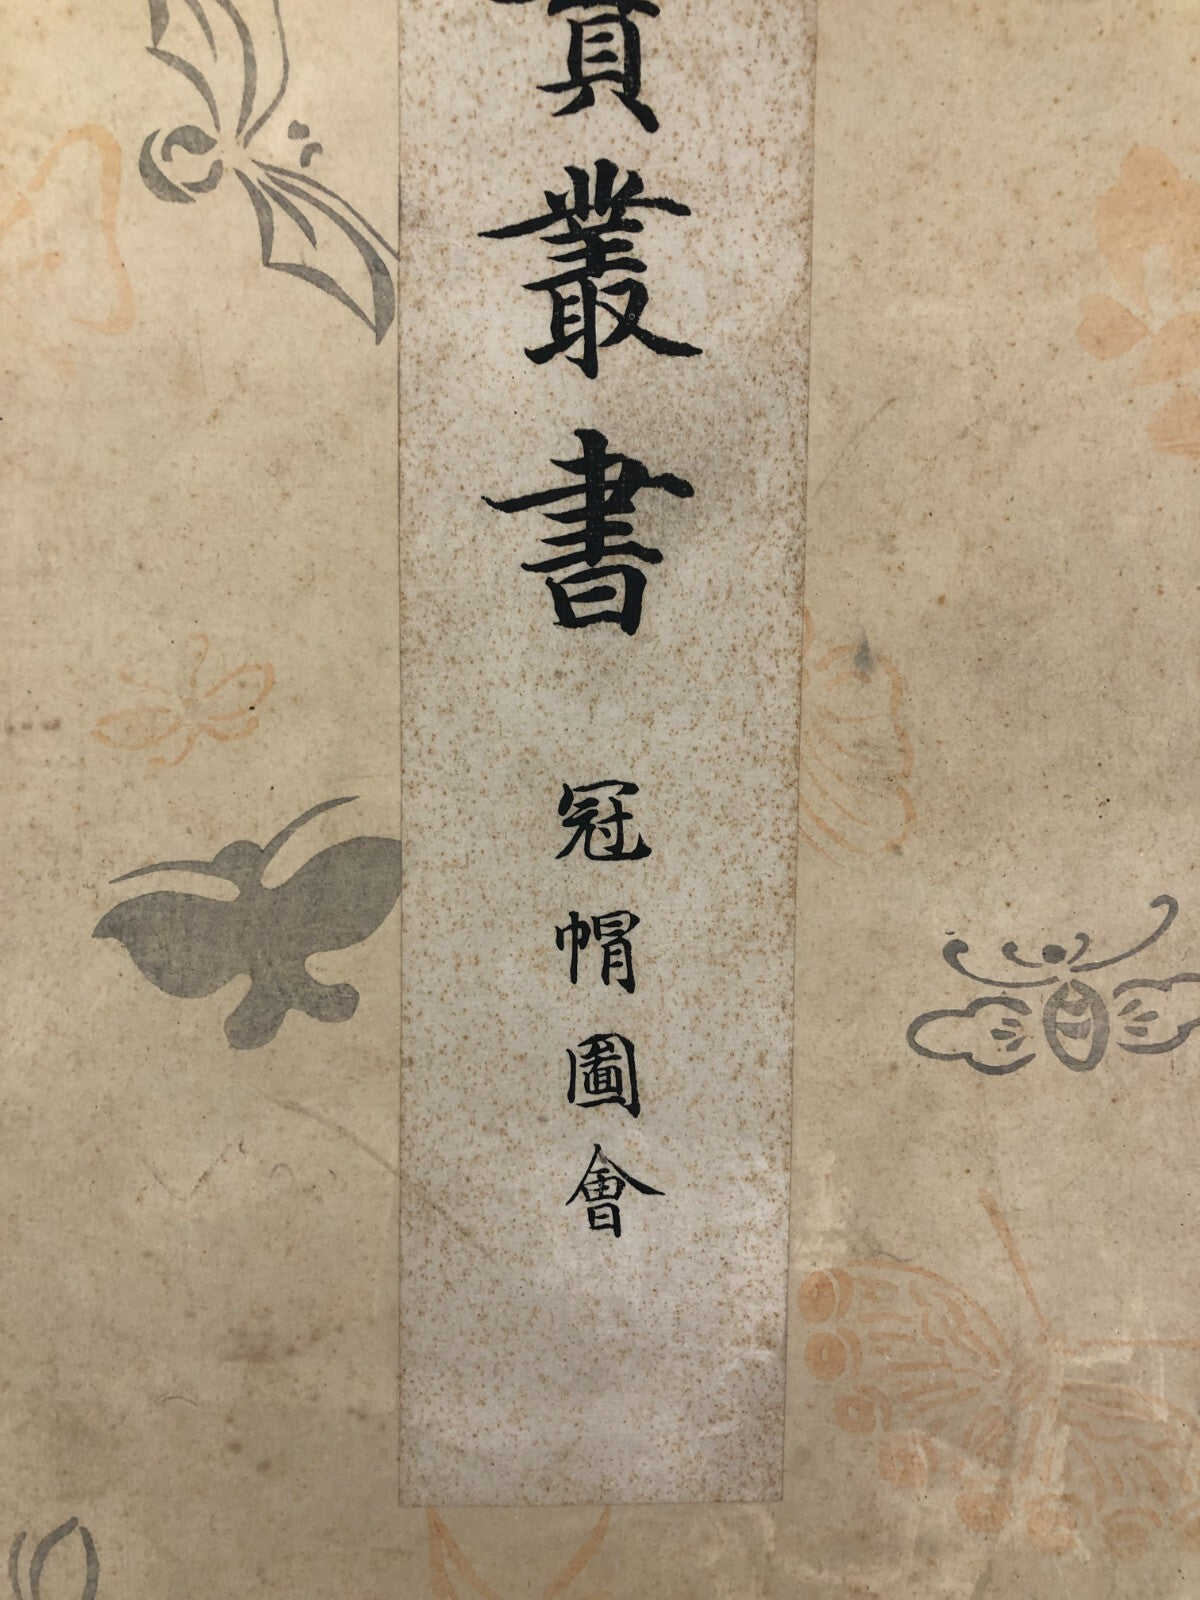 實叢書 冠帽圖會